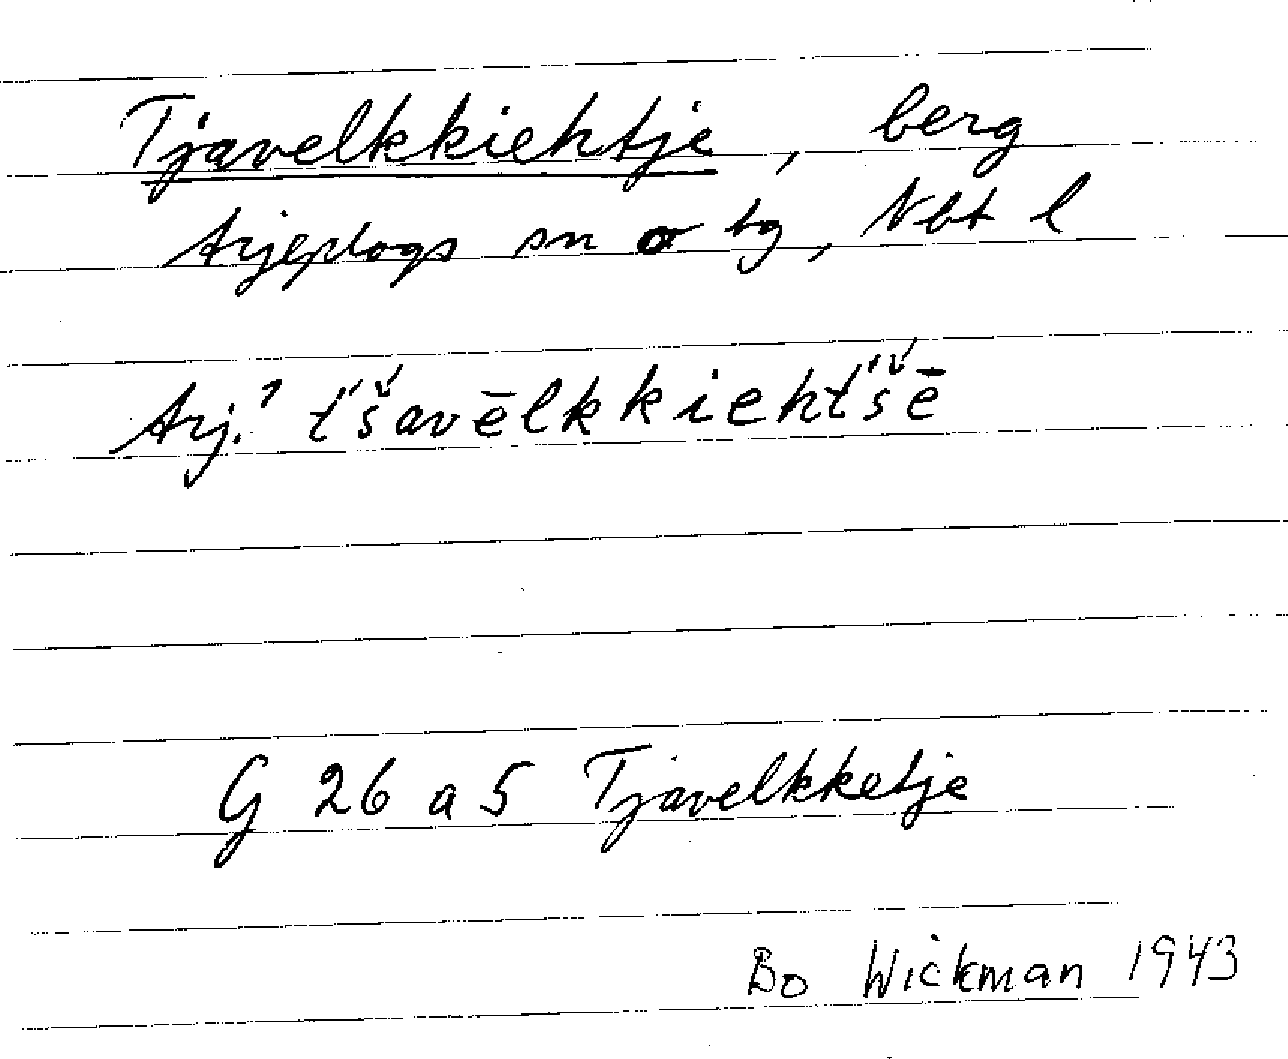 Tjavelkkiehtje, berg
Arjeplogs sn o tg, Nbt l
Arj.¹ t́š́avēlkkieht́š́ē
G 26 a 5 Tjavelkketje
Bo Wickman 1943